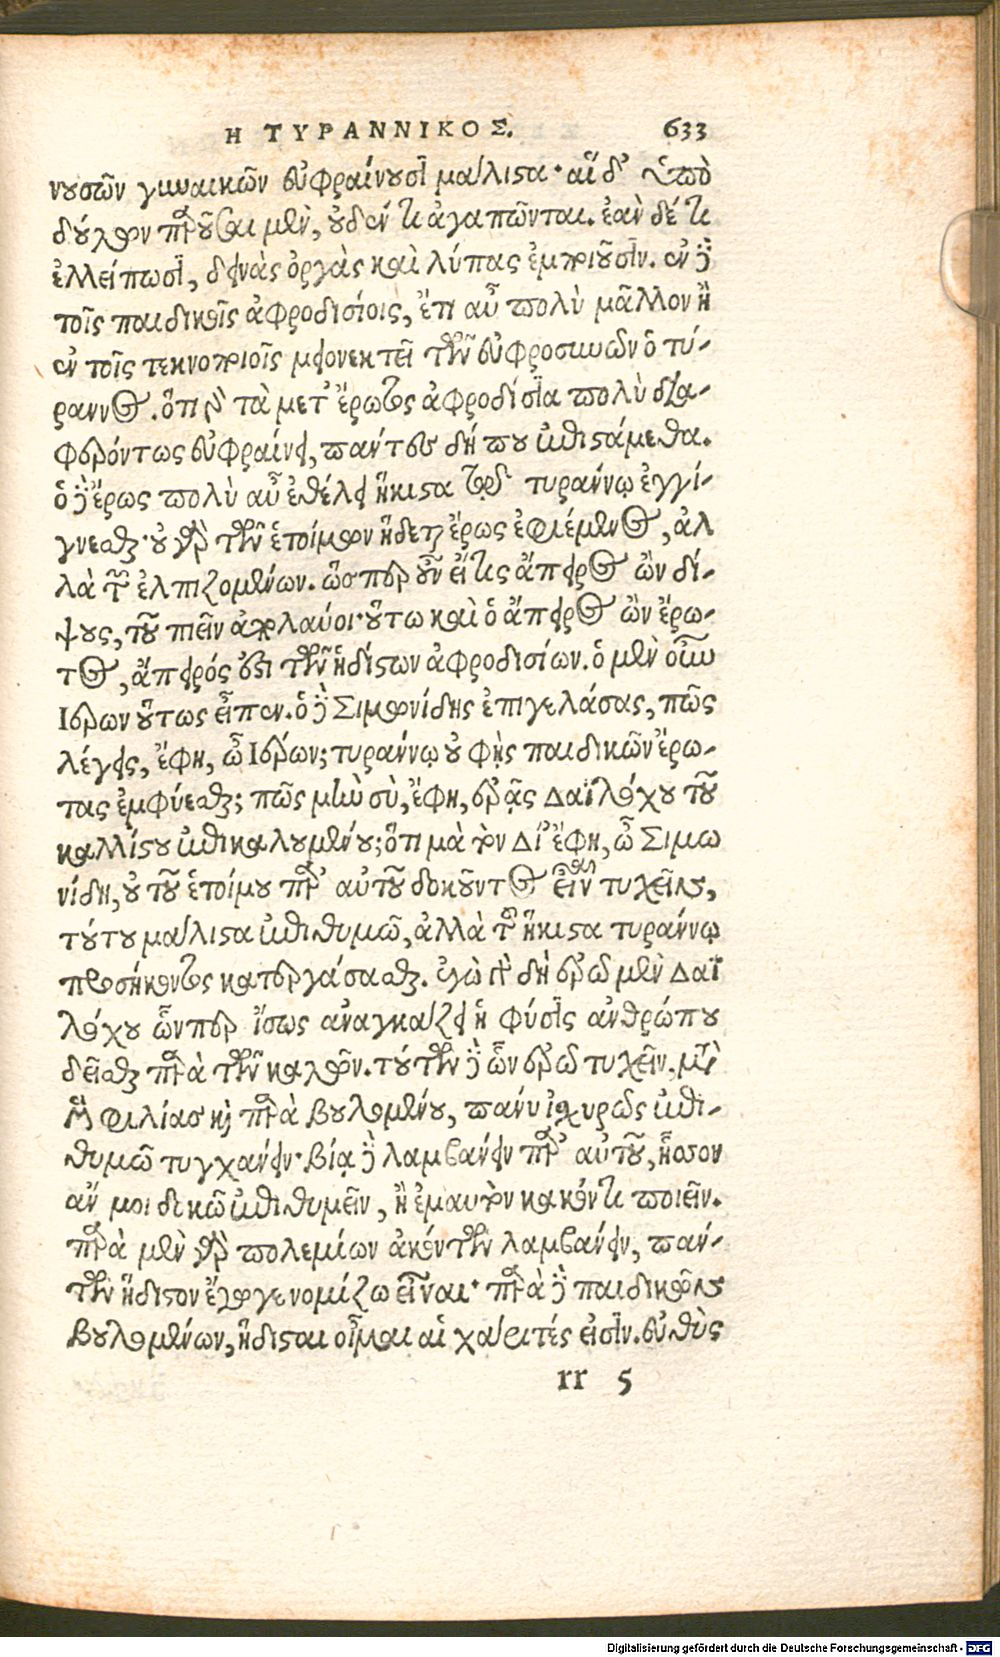 Η ΤΥΡΑΝΝΙΚΟΣ. 633
νουσῶν γυναικῶν εὐφραίνουσι μάλιστα· αἱ δ' ὑπὸ
δούλων παροῦσαι μὲν, οὐδέν τι ἀγαπῶνται. ἐὰν δέ τι
ἐλλείπωσι, δεινὰς ὀργὰς καὶ λύπας ἐμποιοῦσιν. ἐν δὲ
τοῖς παιδικοῖς ἀφροδισίοις, ἔτι αὖ πολὺ μᾶλλον ἢ
ἐν τοῖς τεκνοποιοῖς μειονεκτεῖ τῶν εὐφροσυνῶν ὁ τύ-
ραννος. ὅτι γὰρ τὰ μετ' ἔρωτος ἀφροδίσια πολὺ δια-
φερόντως εὐφραίνει, πάντες δή που ἐπιστάμεθα.
ὁ δὲ ἔρως πολὺ αὖ ἐθέλει ἥκιστα τῷ τυράννῳ ἐγγί-
γνεσθαι· οὐ γὰρ τῶν ἑτοίμων ἥδεται ἔρως ἐφιέμενος, ἀλ
λὰ τῶν ἐλπιζομένων. ὥσπερ οὖν εἴ τις ἄπειρος ὢν δί-
ψους, τοῦ πιεῖν ἀπολαύοι· οὕτω καὶ ὁ ἄπειρος ὢν ἔρω-
τος, ἄπειρός ἐστι τῶν ἡδίστων ἀφροδισίων. ὁ μὲν οὖν
Ἱέρων οὕτως εἶπεν. ὁ δὲ Σιμωνίδης ἐπιγελάσας, πῶς
λέγεις, ἔφη, ὦ Ἱέρων; τυράννῳ οὐ φῂς παιδικῶν ἔρω-
τας ἐμφύεσθαι; πῶς μὴν σὺ, ἔφη, ἐρᾷς Δαϊλόχου τοῦ
καλλίστου ἐπικαλουμένου; ὅτι μὰ τὸν Δί' ἔφη, ὦ Σιμω
νίδη, οὐ τοῦ ἑτοίμου παρ' αὐτοῦ δοκοῦντος εἶναι τυχεῖν,
τούτου μάλιστα ἐπιθυμῶ, ἀλλὰ τοῦ ἥκιστα τυράννῳ
προσήκοντος κατεργάσασθαι. ἐγὼ γὰρ δὴ ἐρῶ μὲν Δαϊ
λόχου ὧνπερ ἴσως ἀναγκάζει ἡ φύσις ἀνθρώπου
δεῖσθαι παρὰ τῶν καλῶν. τούτων δὲ ὧν ἐρῶ τυχεῖν, μετὰ
μὲν φιλίας καὶ παρὰ βουλομένου, πάνυ ἰσχυρῶς ἐπι-
θυμῶ τυγχάνειν· βίᾳ δὲ λαμβάνειν παρ' αὐτοῦ, ἧσσον
ἄν μοι δοκῶ ἐπιθυμεῖν, ἢ ἐμαυτὸν κακόν τι ποιεῖν.
παρὰ μὲν γὰρ πολεμίων ἀκόντων λαμβάνειν, πάν-
των ἥδιστον ἔγωγε νομίζω εἶναι· παρὰ δὲ παιδικῶν
βουλομένων, ἥδισται οἶμαι αἱ χάριτές εἰσιν. εὐθὺς
rr 5
Digitalisierung gefördert durch die Deutsche Forschungsgemeinschaft - DFG